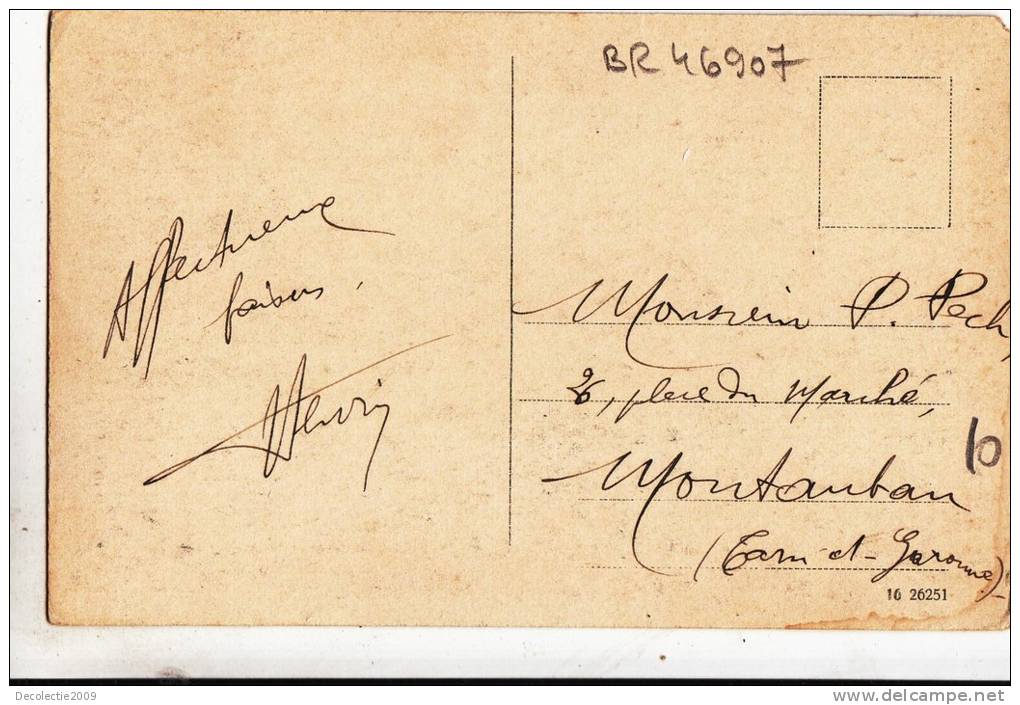 BR 46907
Affectueux
baisers.
Henri
Monsieur P. Pech,
26, place du Marché,
Montauban
(Tarn-et-Garonne)
10
16 26251
Decolectie2009
www.delcampe.net